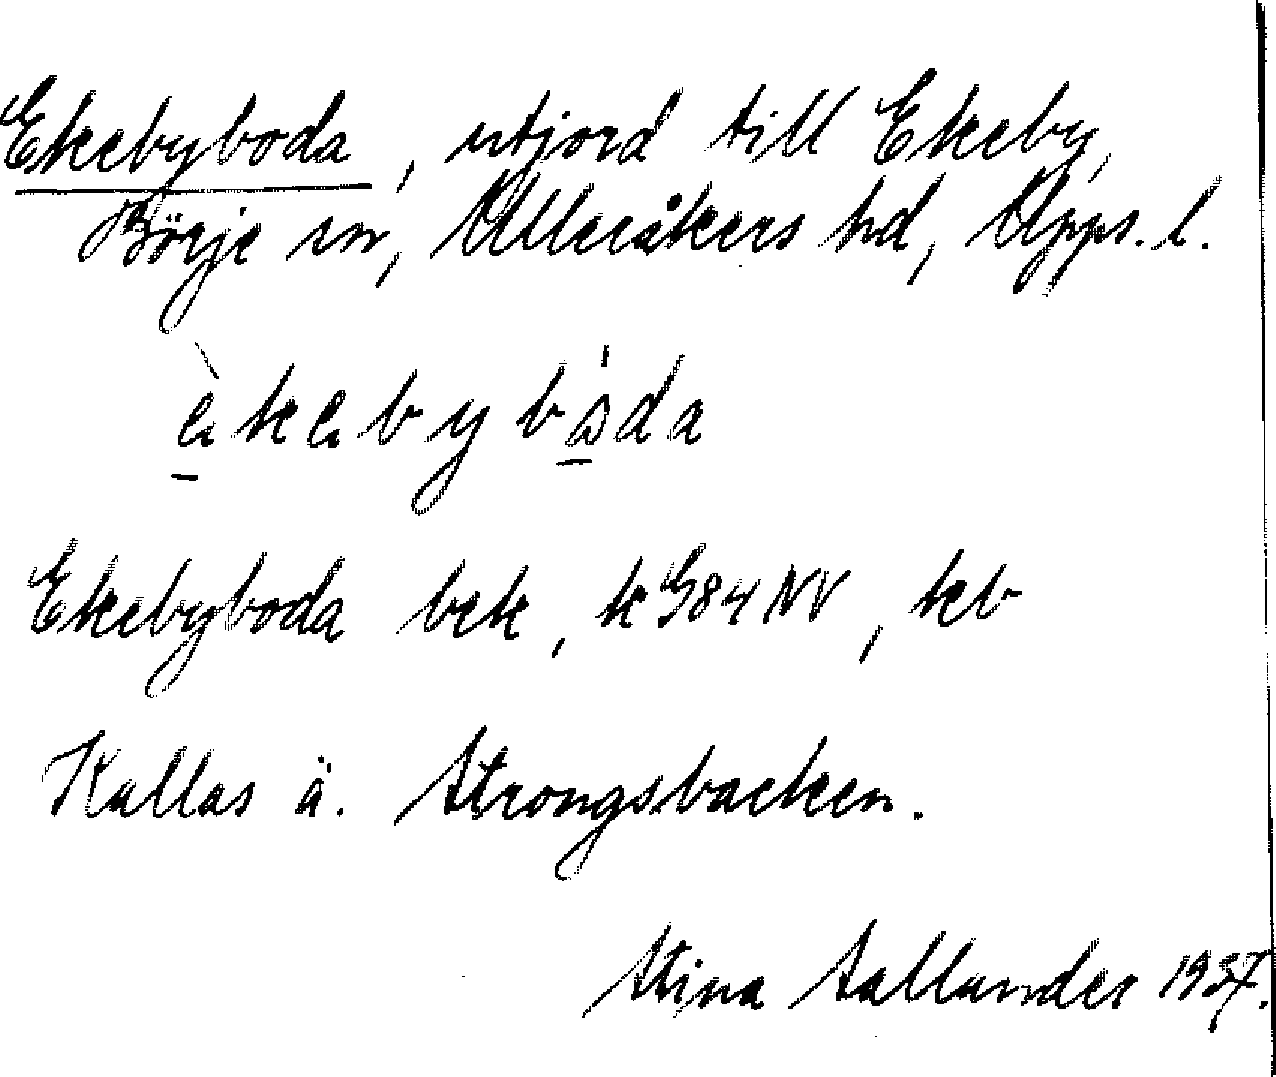 Ekebyboda, utjord till Ekeby,
Börje sn, Ulleråkers hd, Upps. l.
èkebybòda
Ekebyboda bek, k G84 NV, kb
Kallas ä. Strongsbacken.
Stina Sallander 1937.